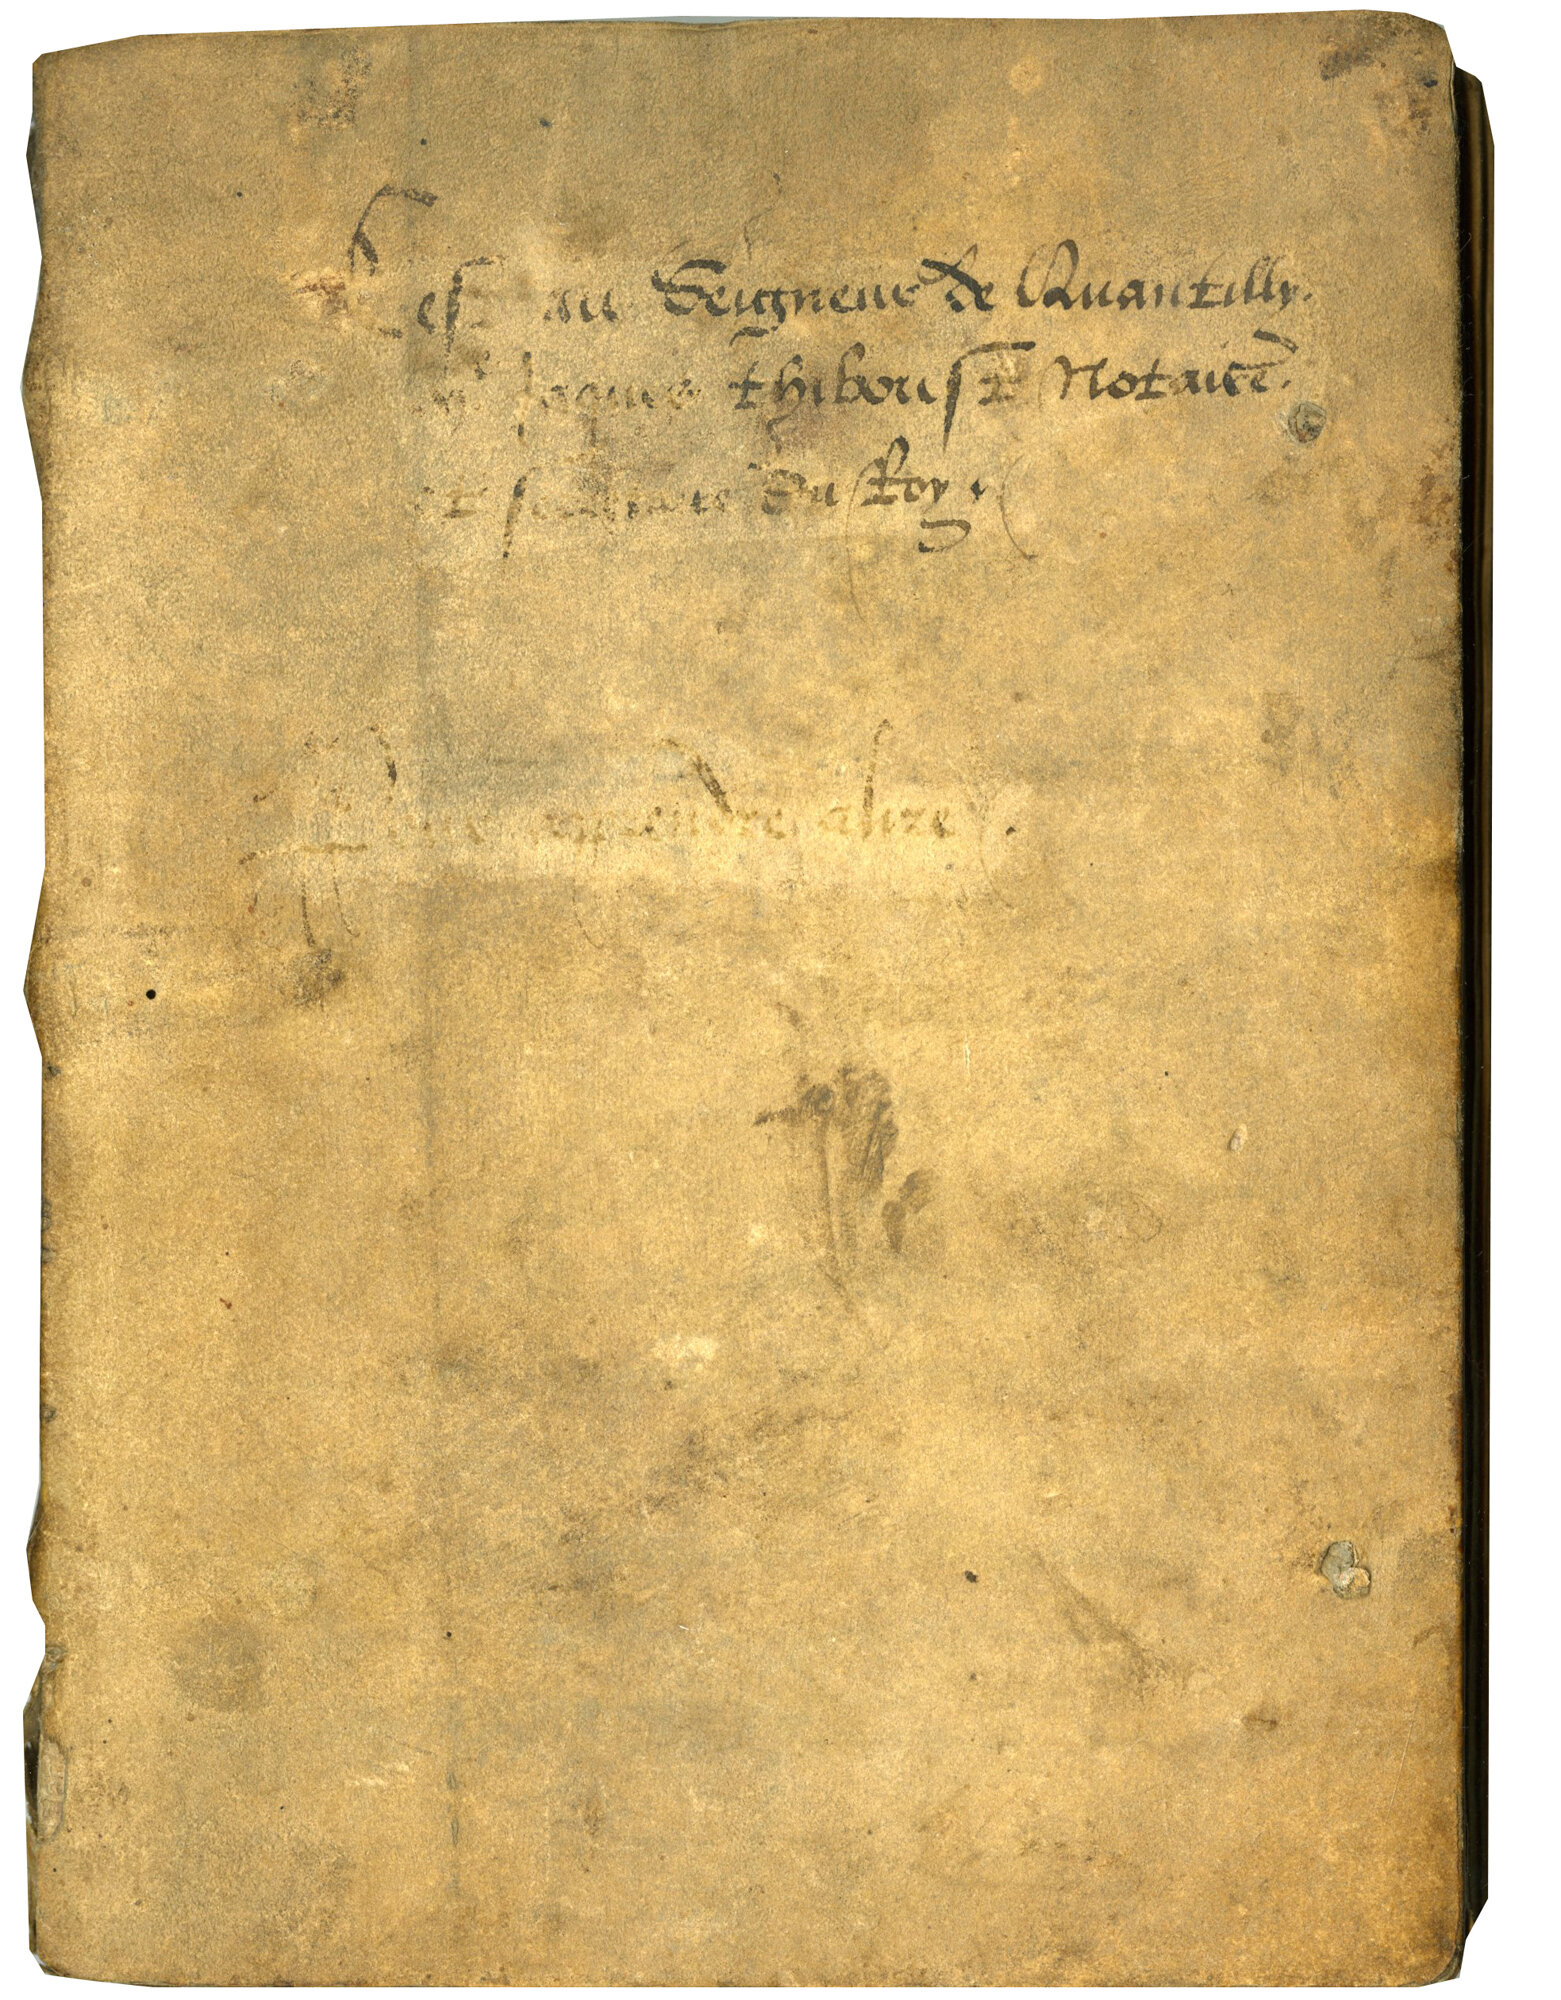 C'est au Seigneur de Quantilly.
Mᵉ Jaques thiboust Notaire.
et secretaire du Roy
Pour aprendre a lire.